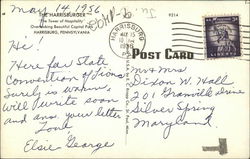 May 14, 1956
THE HARRISBURGER
The Tower of Hospitality
Overlooking Beautiful Capitol Park
HARRISBURG, PENNSYLVANIA
9214
HARRISBURG
MAY 15
1956
PA.
POST CARD
Hi!
Here for State
Convention of Lions
Surely is warm,
will write soon
and ans. your letter
Love
Elsie George
Mr & Mrs
Dixon W. Hall
201 Granville Drive
Silver Spring
Maryland